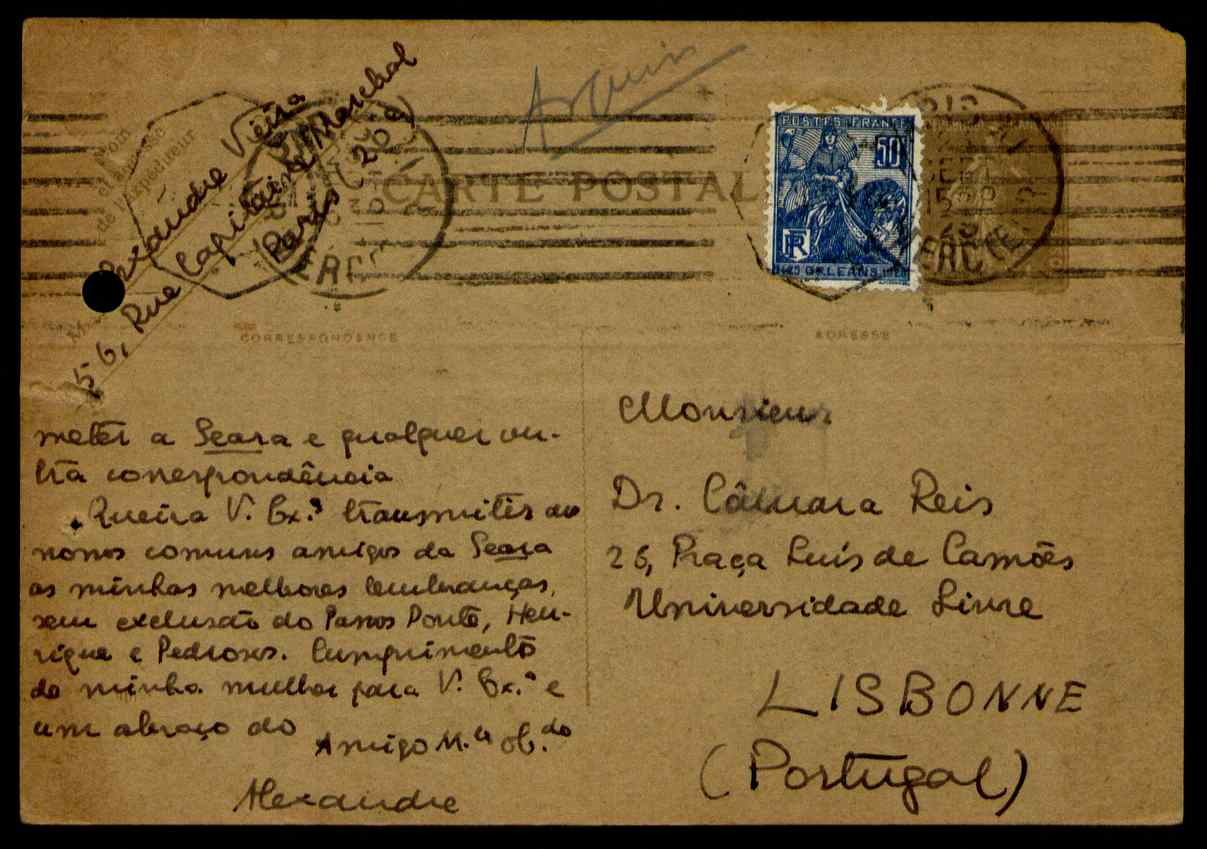 Arquiv
Nom
et adresse
de l'expéditeur
Alexandre Vieira
56, Rue Capitaine Marchal
Paris (20e)
CARTE POSTALE
POSTES FRANCE
50
RF
ORLEANS
CORRESPONDANCE
ADRESSE
meter a Seara e qualquer ou-
tra correspondência
Queira V. Ex.ª transmitir ao
nossos comuns amigos da Seara
as minhas melhores lembranças,
sem exclusão do Passos Ponte, Hen-
rique e Pedroso. Cumprimentos
de minha mulher para V. Ex.ª e
um abraço do
Amigo M.to ob.do
Alexandre
Monsieur
Dr. Câmara Reis
26, Praça Luís de Camões
Universidade Livre
LISBONNE
(Portugal)